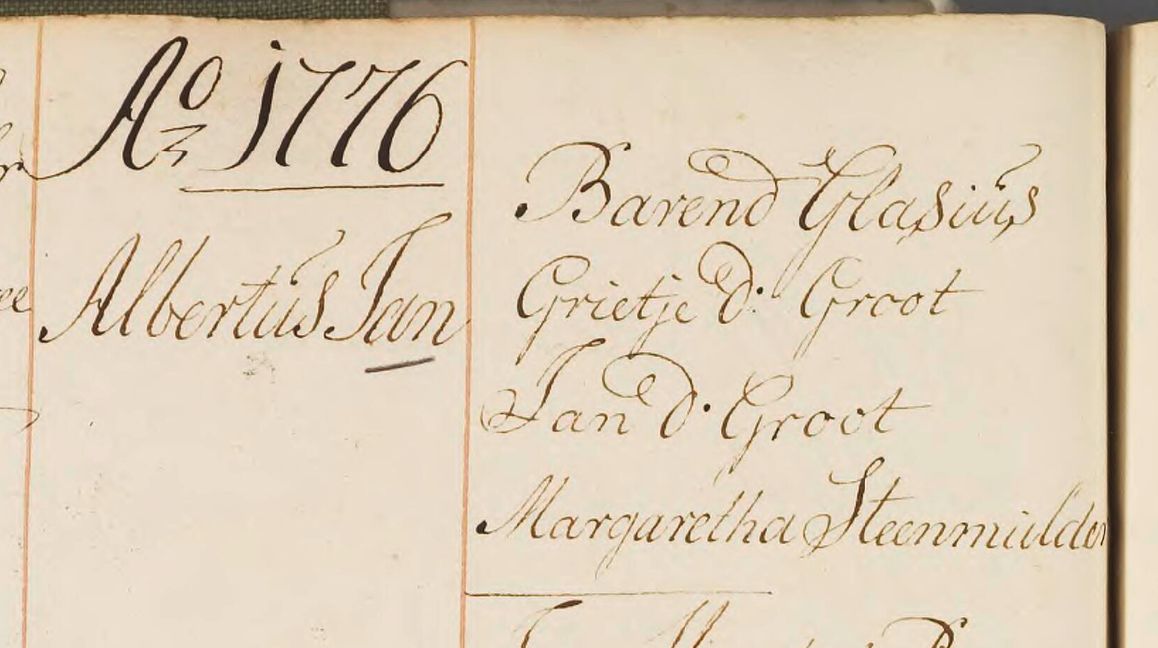 Ao 1776
Albertus Jan
Barend Glasius
Grietje d: Groot
Jan d. Groot
Margaretha Steenmulder